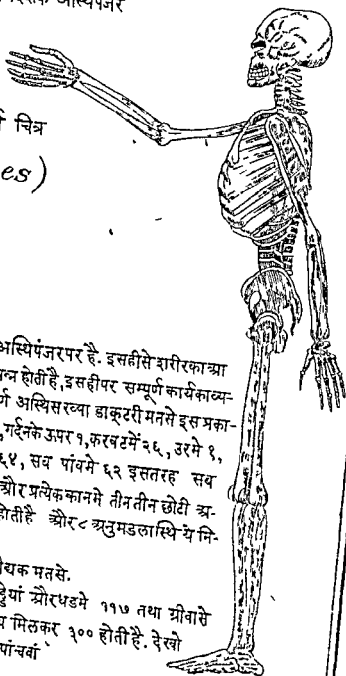 अस्थिपंजर
चित्र
es)
अस्थिपंजरपर है. इसहीसे शरीरका आ
होती है, इसहीपर सम्पूर्ण कार्यकाव्य-
र्ण अस्थिसरव्या डाक्टरी मतसे इस प्रका-
, गर्दनके ऊपर १, करवटमें २६, उरमे १,
६४, सब पांवमे ६२ इसतरह सब
और प्रत्येक कानमे तीनतीन छोटी अ-
होतीहै और ८ अनुमडलास्थि-ये मि-
यक मतसे.
ड्डियां औरधडमे ११७ तथा ग्रीवासे
मिलकर ३०० होती है. देखो
पांचवां